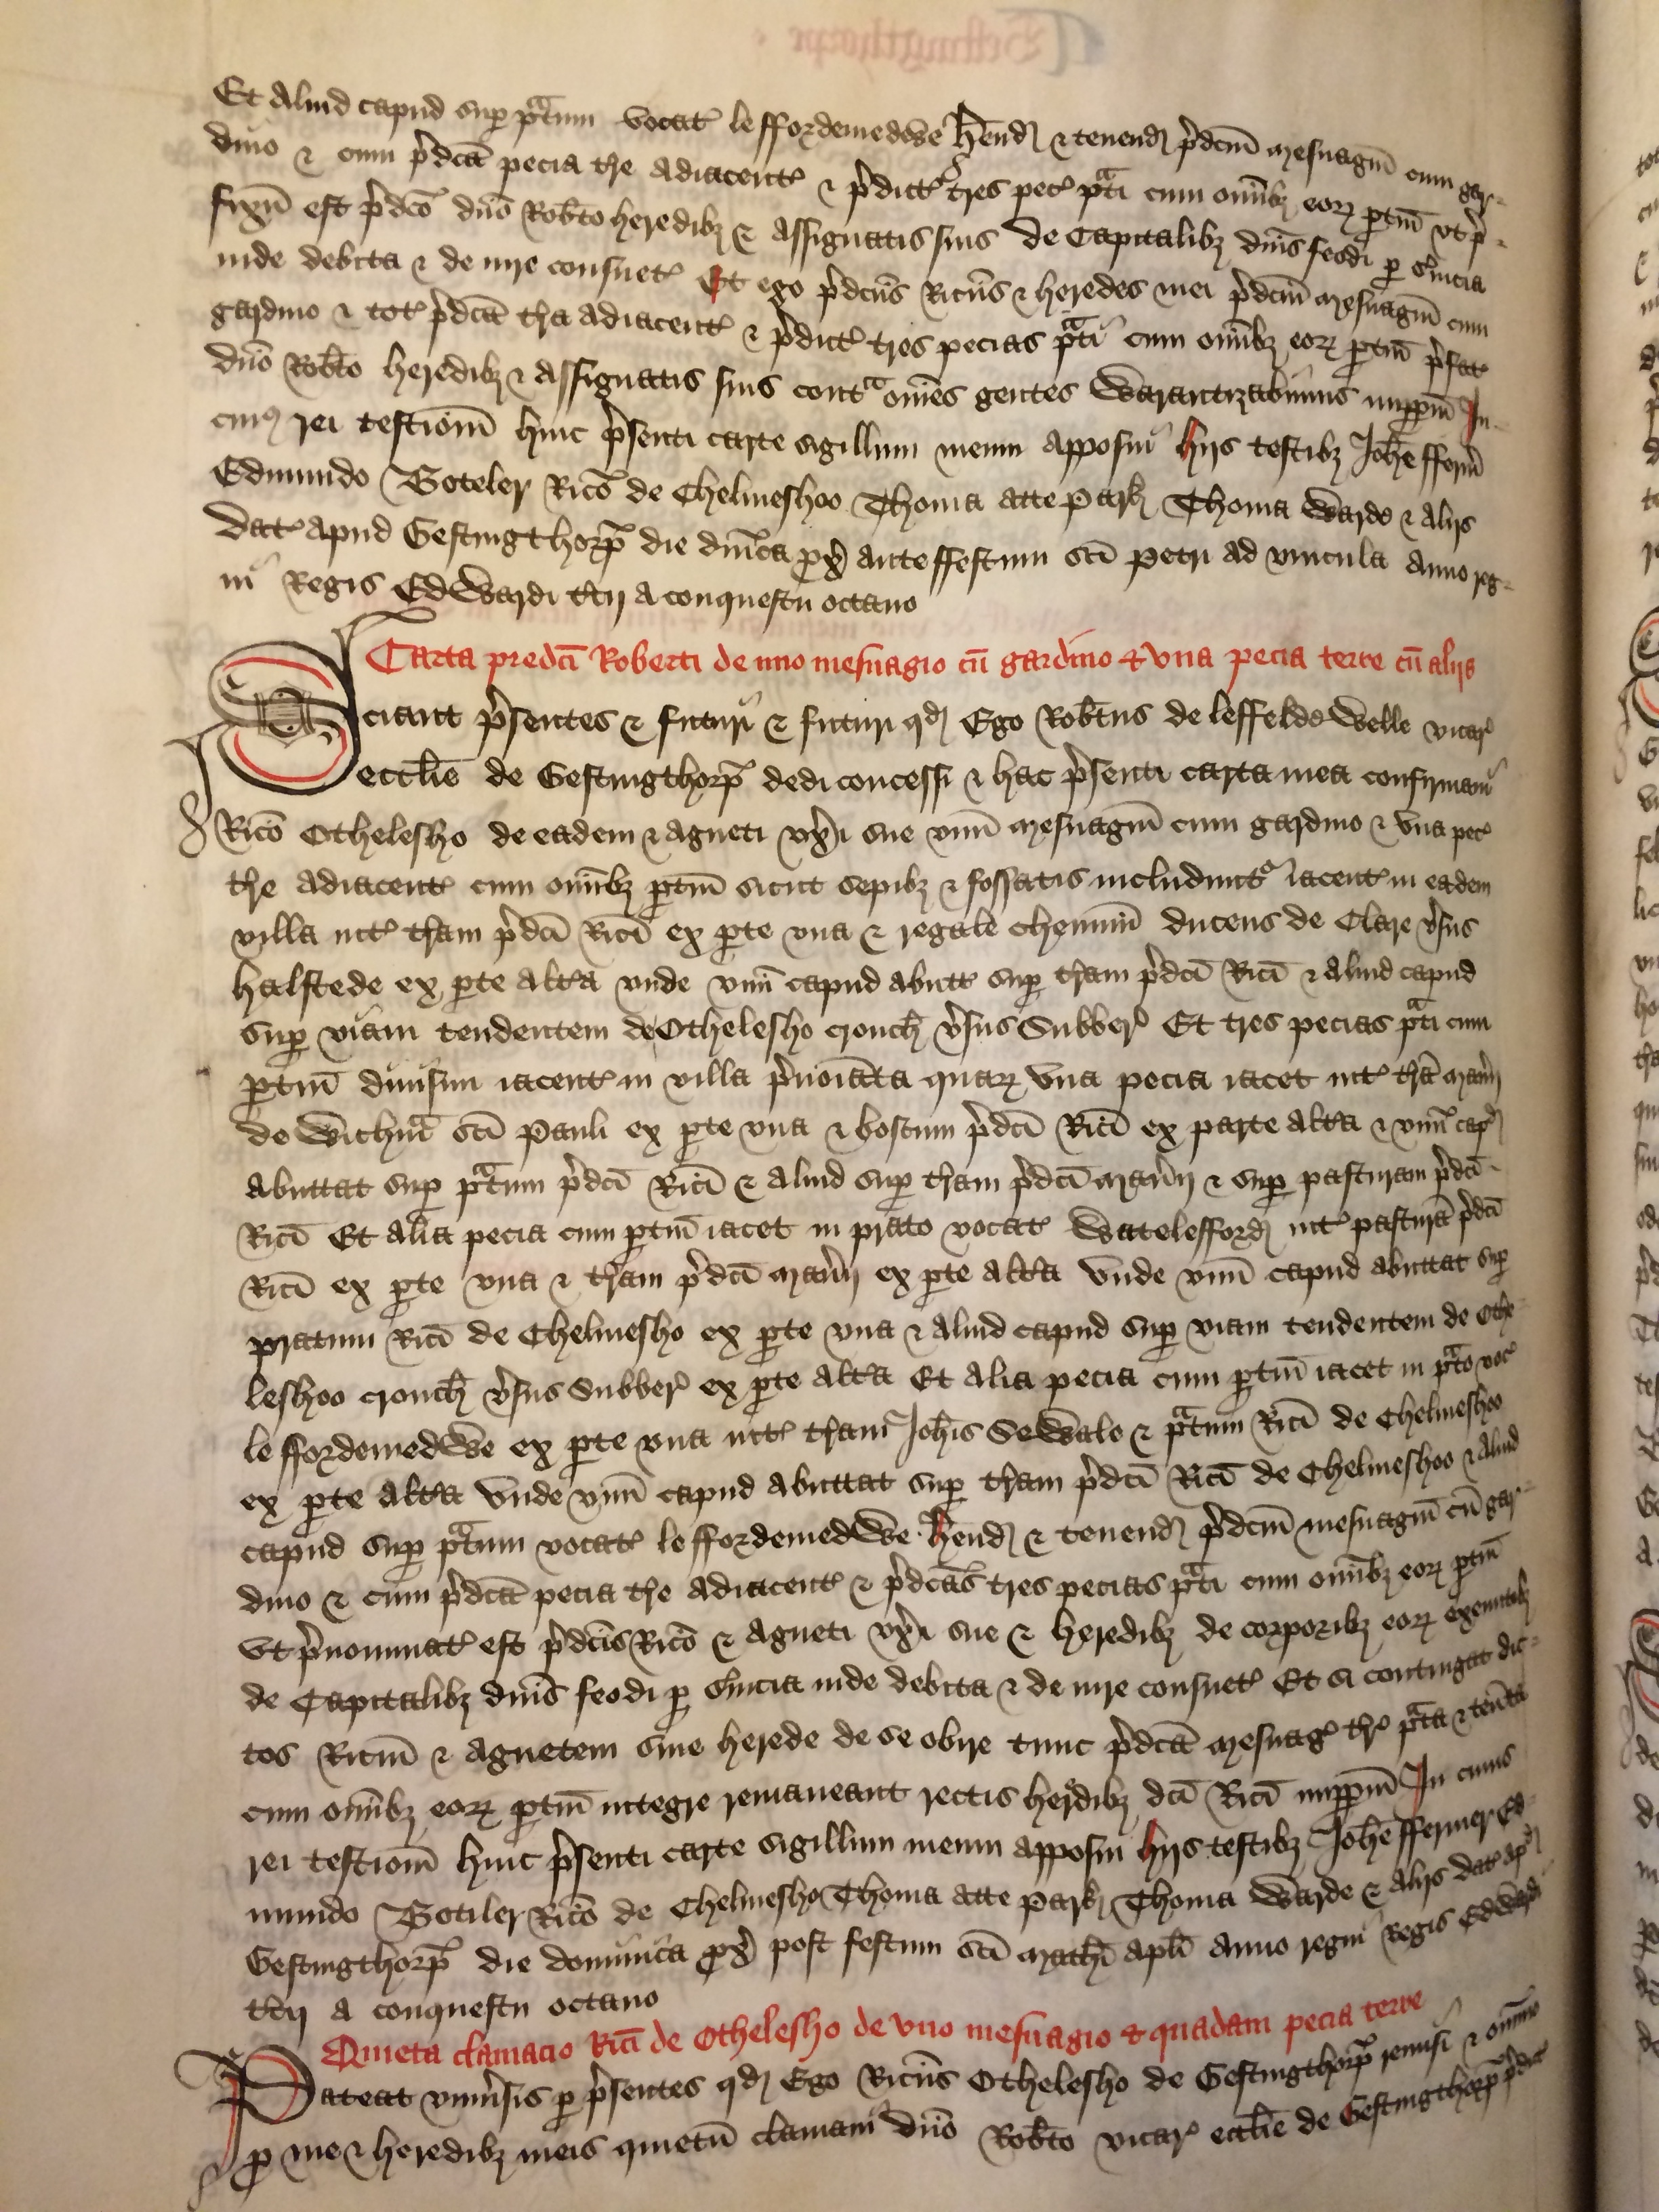 Et aliud capud sup p̃atum vocat̉ le ffordemedwe hẽnd̉ ⁊ tenend̉ p̉dcm̃ mesuagm̃ cum gar-
dino ⁊ cum p̉dcã pecia tr̃e adiacent̉ ⁊ p̉dict̉ tres pec̉ p̃ati cum om̃ibꝫ eoꝝ ꝑtin̄ vt p̉-
fixū est p̉dcō dn̄o Rob̃to heredibꝫ ⁊ assignatis suis de Capitalibꝫ dn̄is feodi ꝑ s̉uicia
inde debita ⁊ de iure consuet̉ Et ego p̉dcūs Ricūs ⁊ heredes mei p̉dcm̃ mesuagm̃ cum
gardino ⁊ tot̉ p̉dcã tr̃a adiacent̉ ⁊ p̉dict̉ tres pecias p̃ati cum om̃ibꝫ eoꝝ ꝑtin̄ p̉fat̉
dn̄o Rob̃to heredibꝫ ⁊ assignatis suis contᵃ om̃es gentes Warantizabimus imꝑꝑm̄ In
cuiꝰ rei testiom̄ huic p̉senti carte sigillum meum apposui hijs testibꝫ Joh̃e fferm̉
Edmundo Boteler Ricō de Chelmeshoo Thoma atte Park̉ Thoma Warde ⁊ alijs
Dat̉ apud Gestingthorp̃ die dn̄ica ꝓx̉ ante ffestum sc̄i Petri ad vincula Anno reg-
ni Regis Edwardi t̉cij a conquestu octauo
Carta predc̄i Roberti de uno mesuagio cū gardino & vna pecia terre cū alijs
Sciant p̉sentes ⁊ futuri ⁊ futuri qd̉ Ego Rob̃tus de leffeldewelle vicar̉
eccl̃ie de Gestingthorp̃ dedi concessi ⁊ hac p̉senti carta mea confirmaui
Ricō Othelesho de eadem ⁊ Agneti vx̉i sue vnū mesuagm̃ cum gardino ⁊ vna pec̉
tr̃e adiacent̉ cum om̃ibꝫ ꝑtin̄ sicut sepibꝫ ⁊ fossatis includunt̉ iacent̉ in eadem
villa int̉ tr̃am p̉dc̄i Ric̄i ex ꝑte vna ⁊ regale chemin̄ ducens de Clare v̉sus
halstede ex ꝑte alt̃a vnde vnū capud abutt̉ sup tr̃am p̉dc̄i Ric̄i ⁊ aliud capud
sup viam tendentem de Othelesho crouch̃ v̉sus Subber̉ Et tres pecias p̃ati cum
ꝑtin̄ diuisim iacent̉ in villa p̉noiãta quaꝝ vna pecia iacet int̉ tr̃a man̉ij
de Wichm̃ sc̄i Pauli ex ꝑte vna ⁊ boscum p̉dc̄i Ric̄i ex parte alt̃a ⁊ vnū cap̉
abuttat sup p̃atum p̉dc̄i Ric̄i ⁊ aliud sup tr̃am p̉dc̄i man̉ij ⁊ sup pasturam p̉dc̄i
Ric̄i Et alia pecia cum ꝑtin̄ iacet in prato vocat̉ Watelefford̉ int̉ pasturā p̉dc̄i
Ric̄i ex ꝑte vna ⁊ tr̃am p̉dc̄i man̉ij ex ꝑte alt̃a vnde vnū capud abuttat sup
pratum Ric̄i de Chelmesho ex ꝑte vna ⁊ aliud capud sup viam tendentem de Othe-
leshoo crouch̃ v̉sus Subber̉ ex ꝑte alt̃a Et alia pecia cum ꝑtin̄ iacet in p̃ato voc̉
le ffordemedwe ex ꝑte vna int̉ tr̃am Joh̃is Sewale ⁊ p̃atum Ric̄i de Chelmeshoo
ex ꝑte alt̃a vnde vnū capud abuttat sup tr̃am p̉dc̄i Ric̄i de Chelmeshoo ⁊ aliud
capud sup p̃atum vocat̉ le ffordemedwe hẽnd̉ ⁊ tenend̉ p̉dcm̃ mesuagm̃ cū gar-
dino ⁊ cum p̉dcã pecia tr̃e adiacent̉ ⁊ p̉dcãs tres pecias p̃ati cum om̃ibꝫ eoꝝ ꝑtin̄
vt p̉nominat̉ est p̉dcīs Ricō ⁊ Agneti vx̉i sue ⁊ heredibꝫ de corporibꝫ eoꝝ exeuntibꝫ
de Capitalibꝫ dn̄is feodi ꝑ s̉uicia inde debita ⁊ de iure consuet̉ Et si contingat dic-
tos Ricm̄ ⁊ Agnetem sine herede de se obire tunc p̉dcã mesuag̉ tr̃e p̃ata ⁊ ten̄ta
cum om̃ibꝫ eoꝝ ꝑtin̄ integre remaneant rectis heredibꝫ dc̄i Ric̄i imꝑꝑm̄ In cuius
rei testiom̄ huic p̉senti carte sigillum meum apposui hijs testibꝫ Joh̃e ffermer Ed-
mundo Botiler Ricō de Chelmesho Thoma atte Park̉ Thoma Warde ⁊ alijs dat̉ ap̉
Gestingthorp̃ die dominica ꝓx̉ post festum sc̄i Mathī apl̃i Anno regni Regis Edwardi
t̉cij a conquestu octauo
Quieta clamacio Ric̄i de Othelesho de vno mesuagio & quadam pecia terre
Pateat vniu̇̉sis ꝑ p̉sentes qd̉ Ego Ricūs Othelesho de Gestingthorp̃ remisi ⁊ om̄ino
ꝓ me ⁊ heredibꝫ meis quietū clamaui dn̄o Rob̃to vicar̉ eccl̃ie de Gestingthorp̃ p̉dict̉